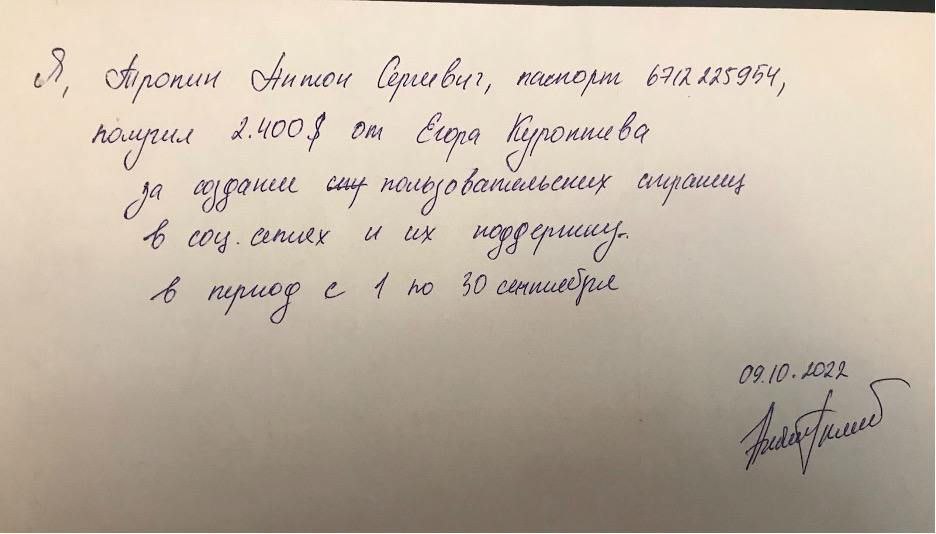 Я, Тропин Антон Сергеевич, паспорт 6712225954,
получил 2.400$ от Егора Куроптева
за создание пользовательских страниц
в соц. сетях и их поддержку.
в период с 1 по 30 сентября
09.10.2022